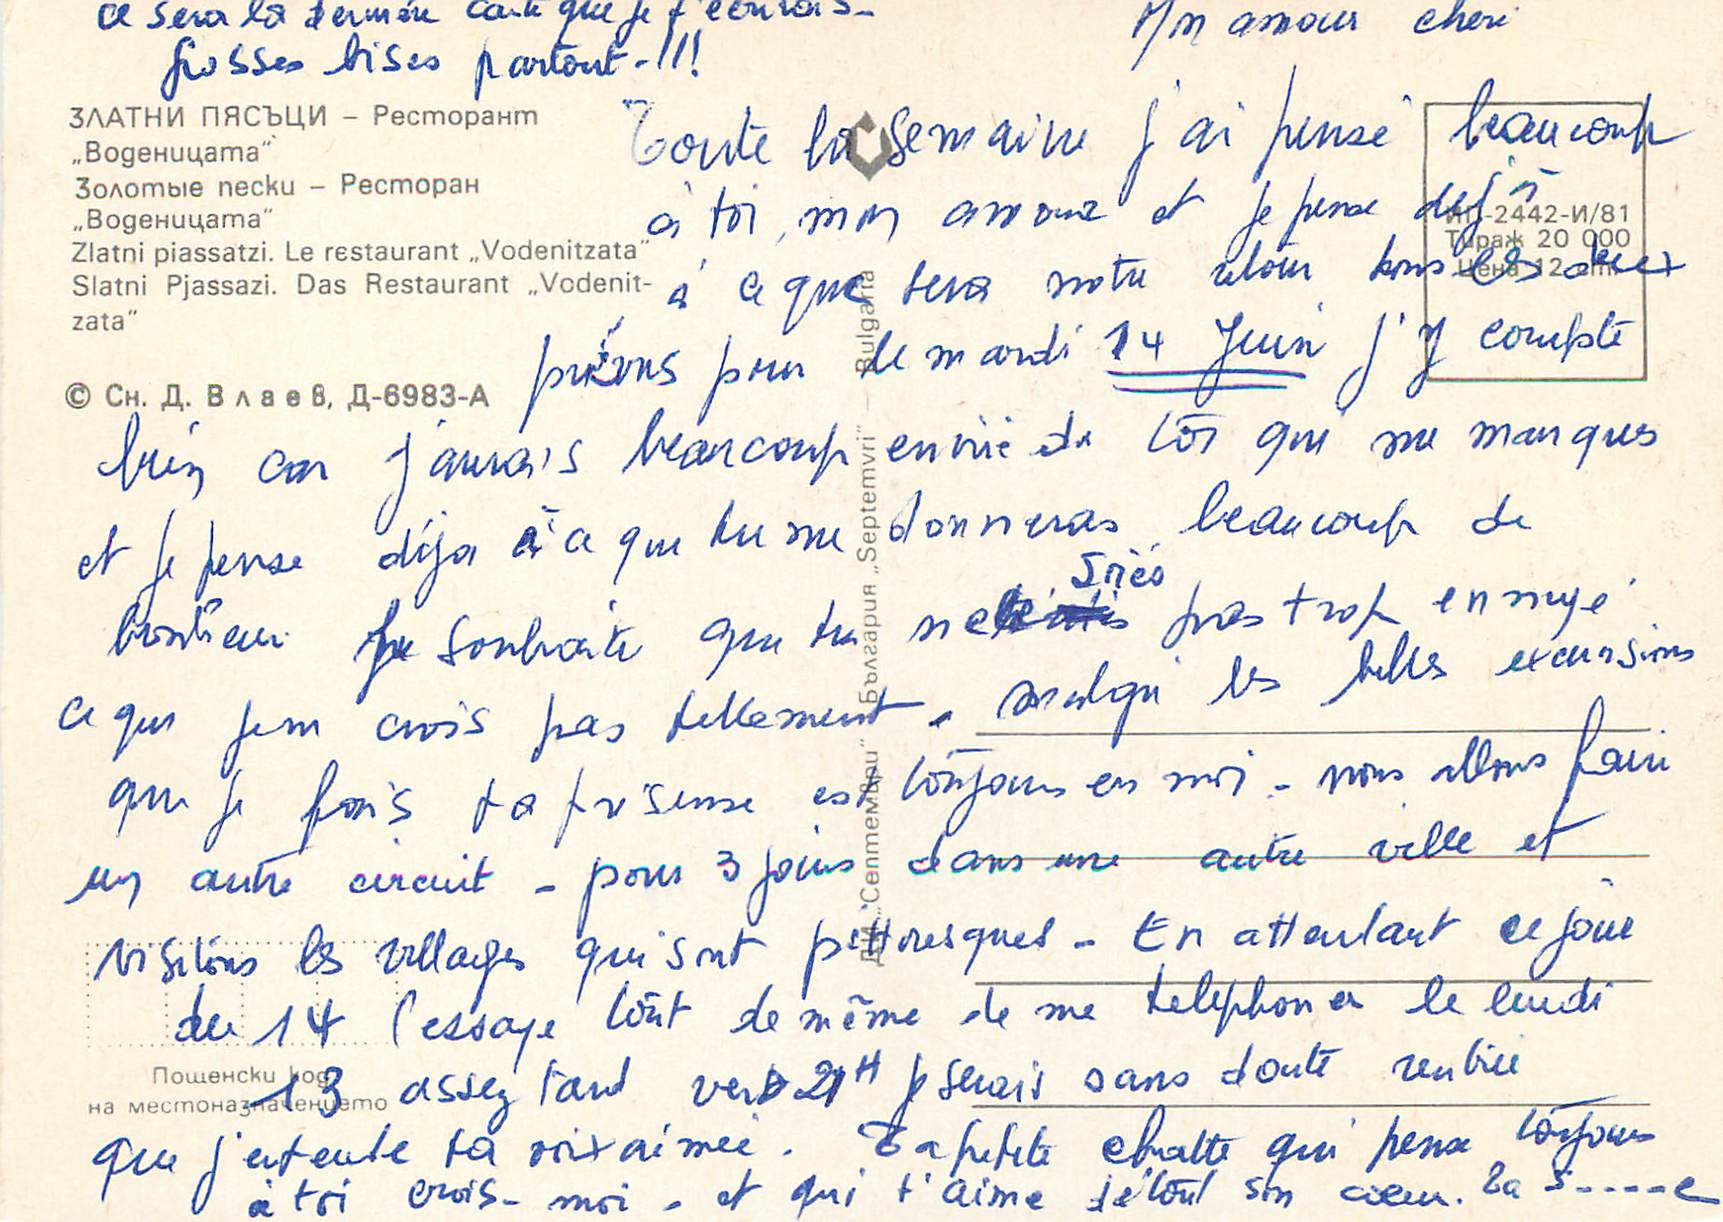 ce sera la dernière carte que je t'écrirais -
Grosses bises partout - !!!
Mn amour cheri
ЗЛАТНИ ПЯСЪЦИ – Ресторант
„Воденицата"
Золотые пески – Ресторан
„Воденицата"
Zlatni piassatzi. Le restaurant „Vodenitzata"
Slatni Pjassazi. Das Restaurant „Vodenit-
zata"
© Сн. Д. Влаев, Д-6983-А
ИП-2442-И/81
Тираж 20 000
Цена 12 ст.
ДИ „Септември" България „Septemvri" – Bulgaria
Toute la semaine j'ai pensé beaucoup
à toi, mon amour et je pense dejà
à ce que sera notre retour tous les deux
prévus pour le mardi 14 Juin j'y compte
bien car j'aurais beaucoup envie de toi qui me manques
et je pense déja à ce que tu me donneras beaucoup de
bonheur je souhaite que tu ne sries pas trop ennuyé
ce que j'en crois pas tellement - malgré les belles excursions
que je fais ta présense est toujours en moi - nous allons faire
un autre circuit - pour 3 jours dans une autre ville et
visitons les villages qui sont pittoresques - En attendant ce jour
du 14 essaye tout de même de me telephoner le lundi
13 assez tard vers 21H je serais sans doute rentrée
que j'entende ta voix aimée. Ta petite chatte qui pense toujours
à toi crois-moi - et qui t'aime de tout son cœur. Ta S-----e
Пощенски код
на местоназначението